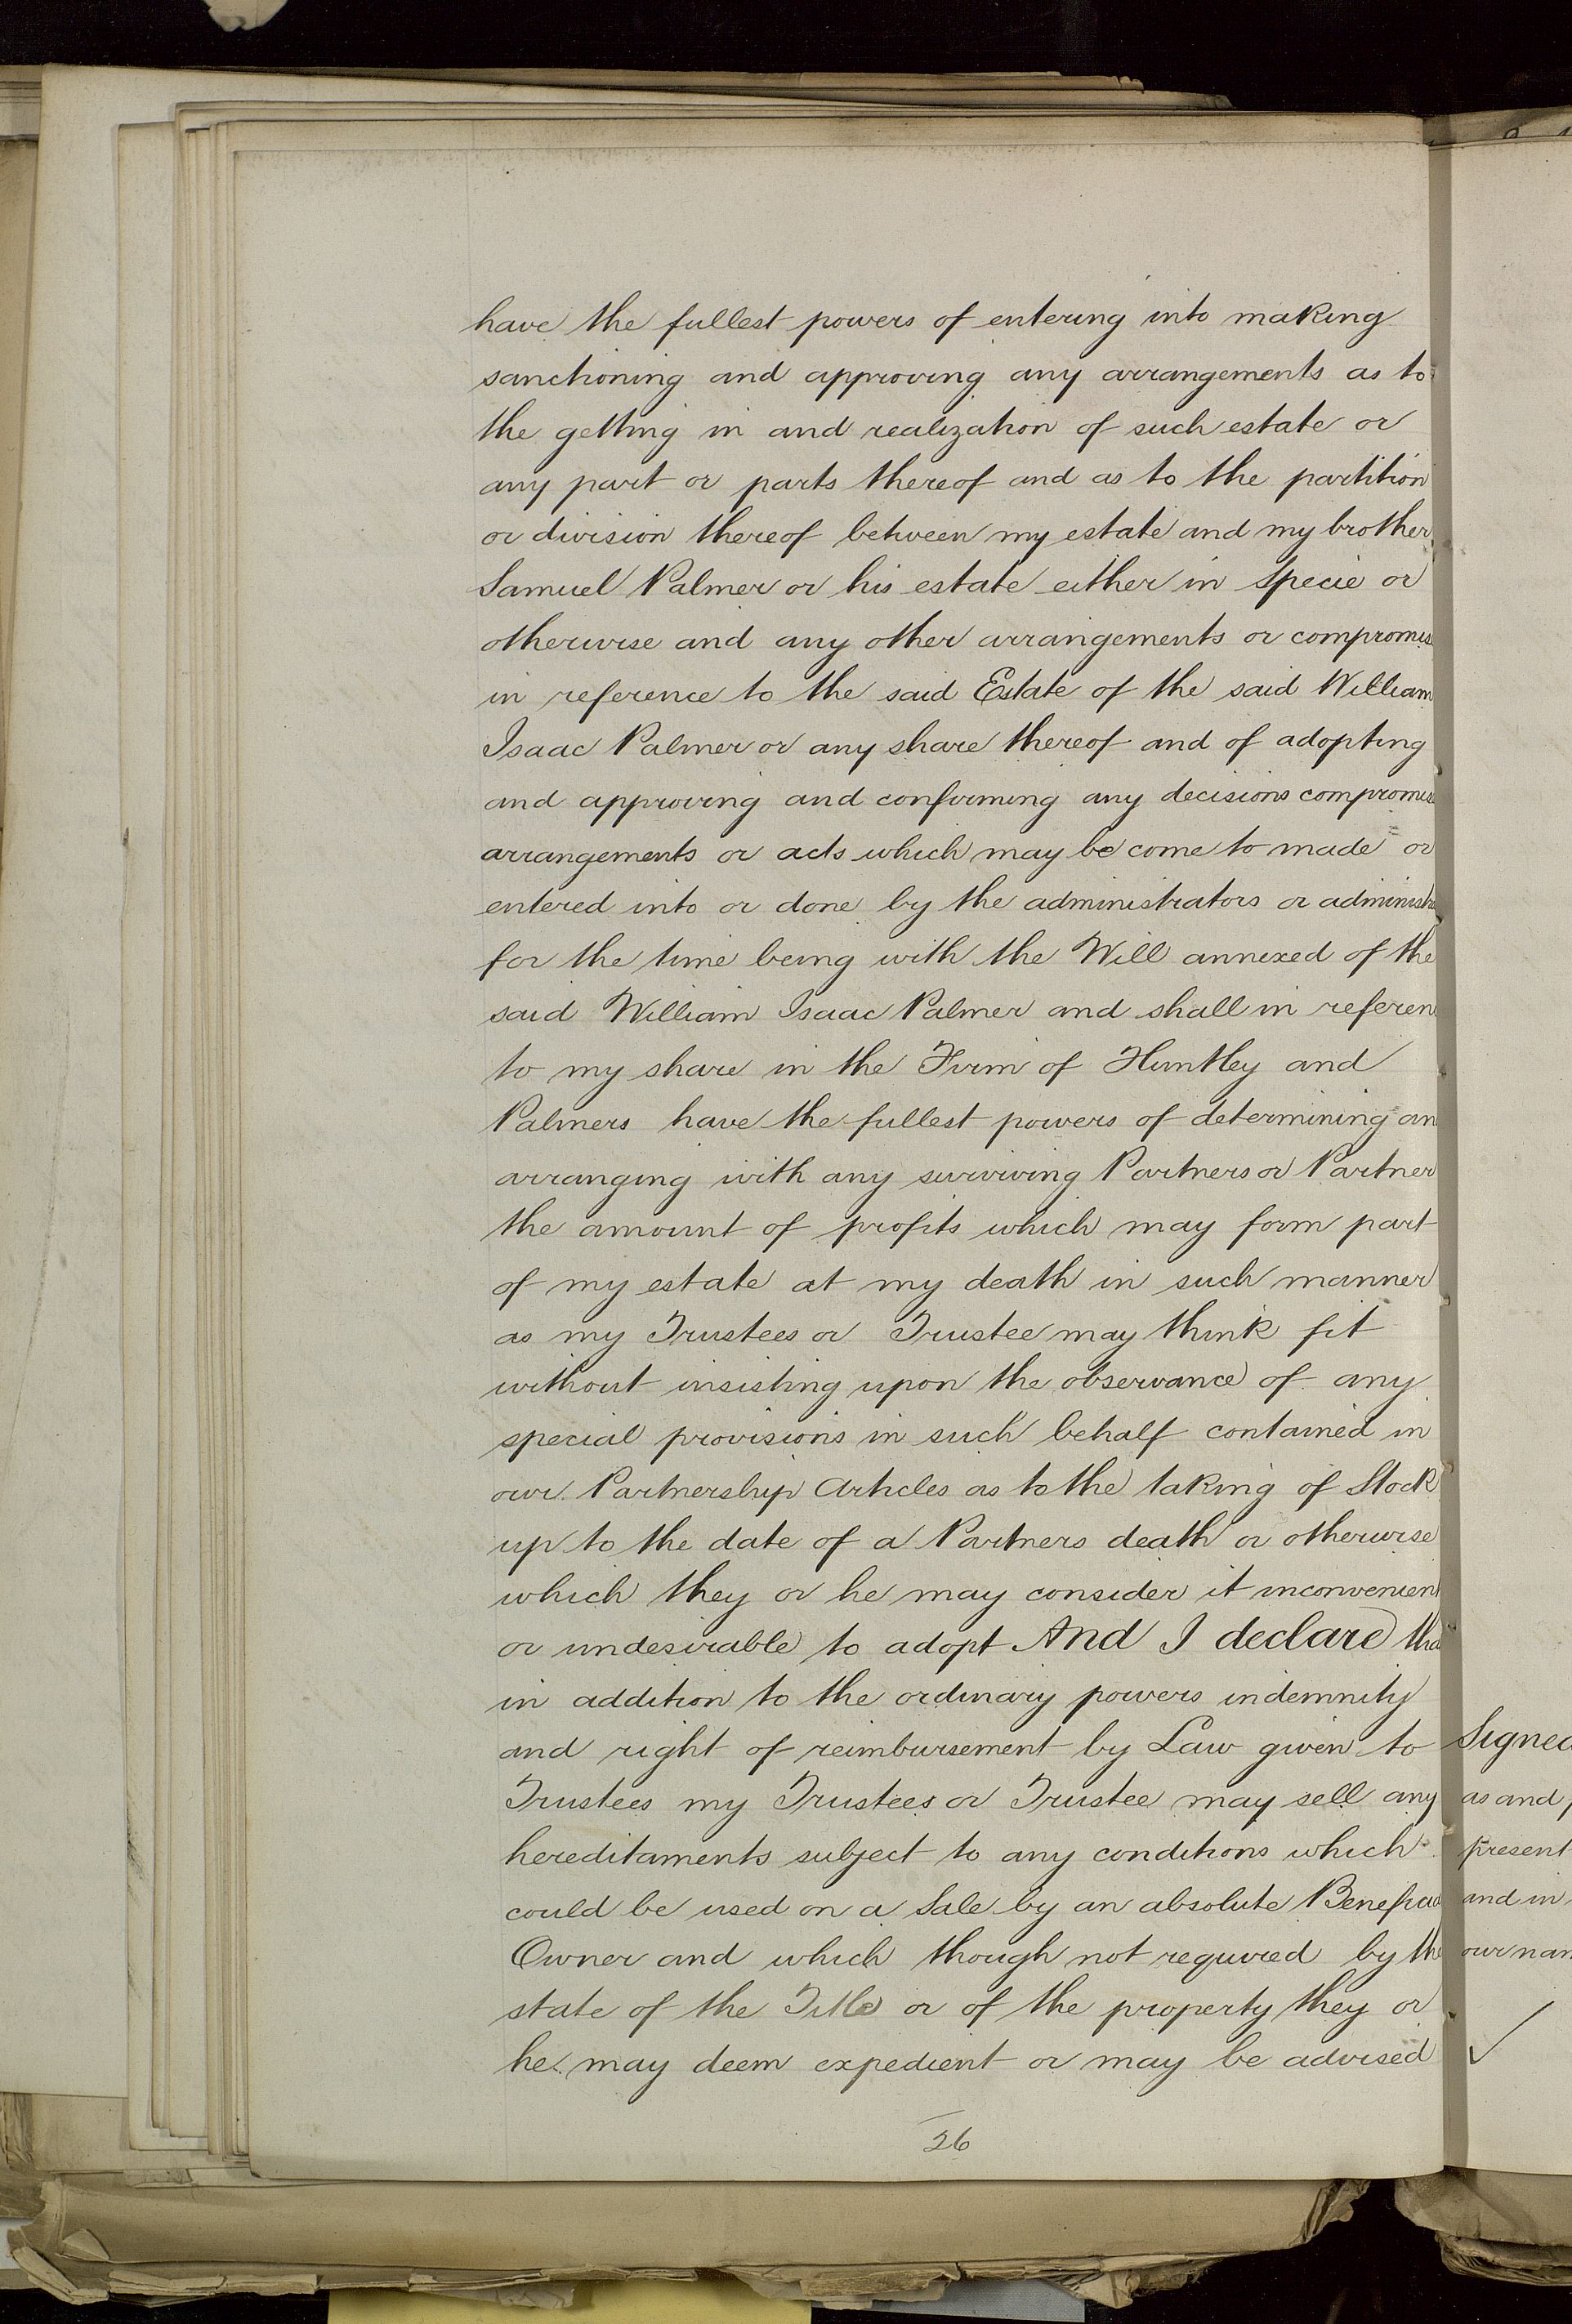 have the fullest powers of entering into making
sanctioning and approving any arrangements as to
the getting in and realization of such estate or
any part or parts thereof and as to the partition
or division thereof between my estate and my brother
Samuel Palmer or his estate either in specie or
otherwise and any other arrangements or compromis
in reference to the said Estate of the said William
Isaac Palmer or any share thereof and of adopting
and approving and confirming any decisions compromise
arrangements or acts which may be come to made or
entered into or done by the administrators or administr
for the time being with the Will annexed of the
said William Isaac Palmer and shall in referen
to my share in the Firm of Huntley and
Palmers have the fullest powers of determining an
arranging with any surviving Partners or Partner
the amount of profits which may form part
of my estate at my death in such manner
as my Trustees or Trustee may think fit
without insisting upon the observance of any
special provisions in such behalf contained in
our Partnership Articles as to the taking of Stock
up to the date of a Partners death or otherwise
which they or he may consider it inconvenient
or undesirable to adopt And I declare tha
in addition to the ordinary powers indemnity
and right of reimbursement by Law given to
Trustees my Trustees or Trustee may sell any
hereditaments subject to any conditions which
could be used on a Sale by an absolute Beneficia
Owner and which though not required by the
state of the Title or of the property they or
he may deem expedient or may be advised
26
Signed
as and
present
and in
our nam